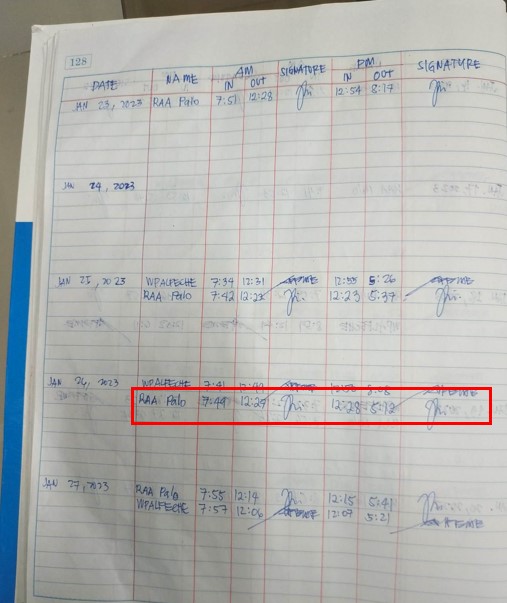 128
DATE NAME AM. SIGNATURE P.M. SIGNATURE
IN OUT IN OUT
JAN 23, 2023 RAA Palo 7:51 12:28 12:54 8:17
JAN 24, 2023
JAN 25, 2023 WPALFECHE 7:39 12:31 5:26
RAA Palo 7:42 12:23 5:39
JAN 26, 2023 WPALFECHE 7:41
RAA Palo 7:49 12:28 5:12
JAN 27, 2023 RAA Palo 7:55 12:14 12:15 5:41
WPALFECHE 7:57 12:06 12:07 5:21